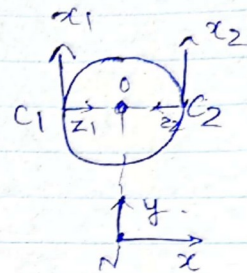 x1 x2
O
C1 z1 z2 C2
y.
N x